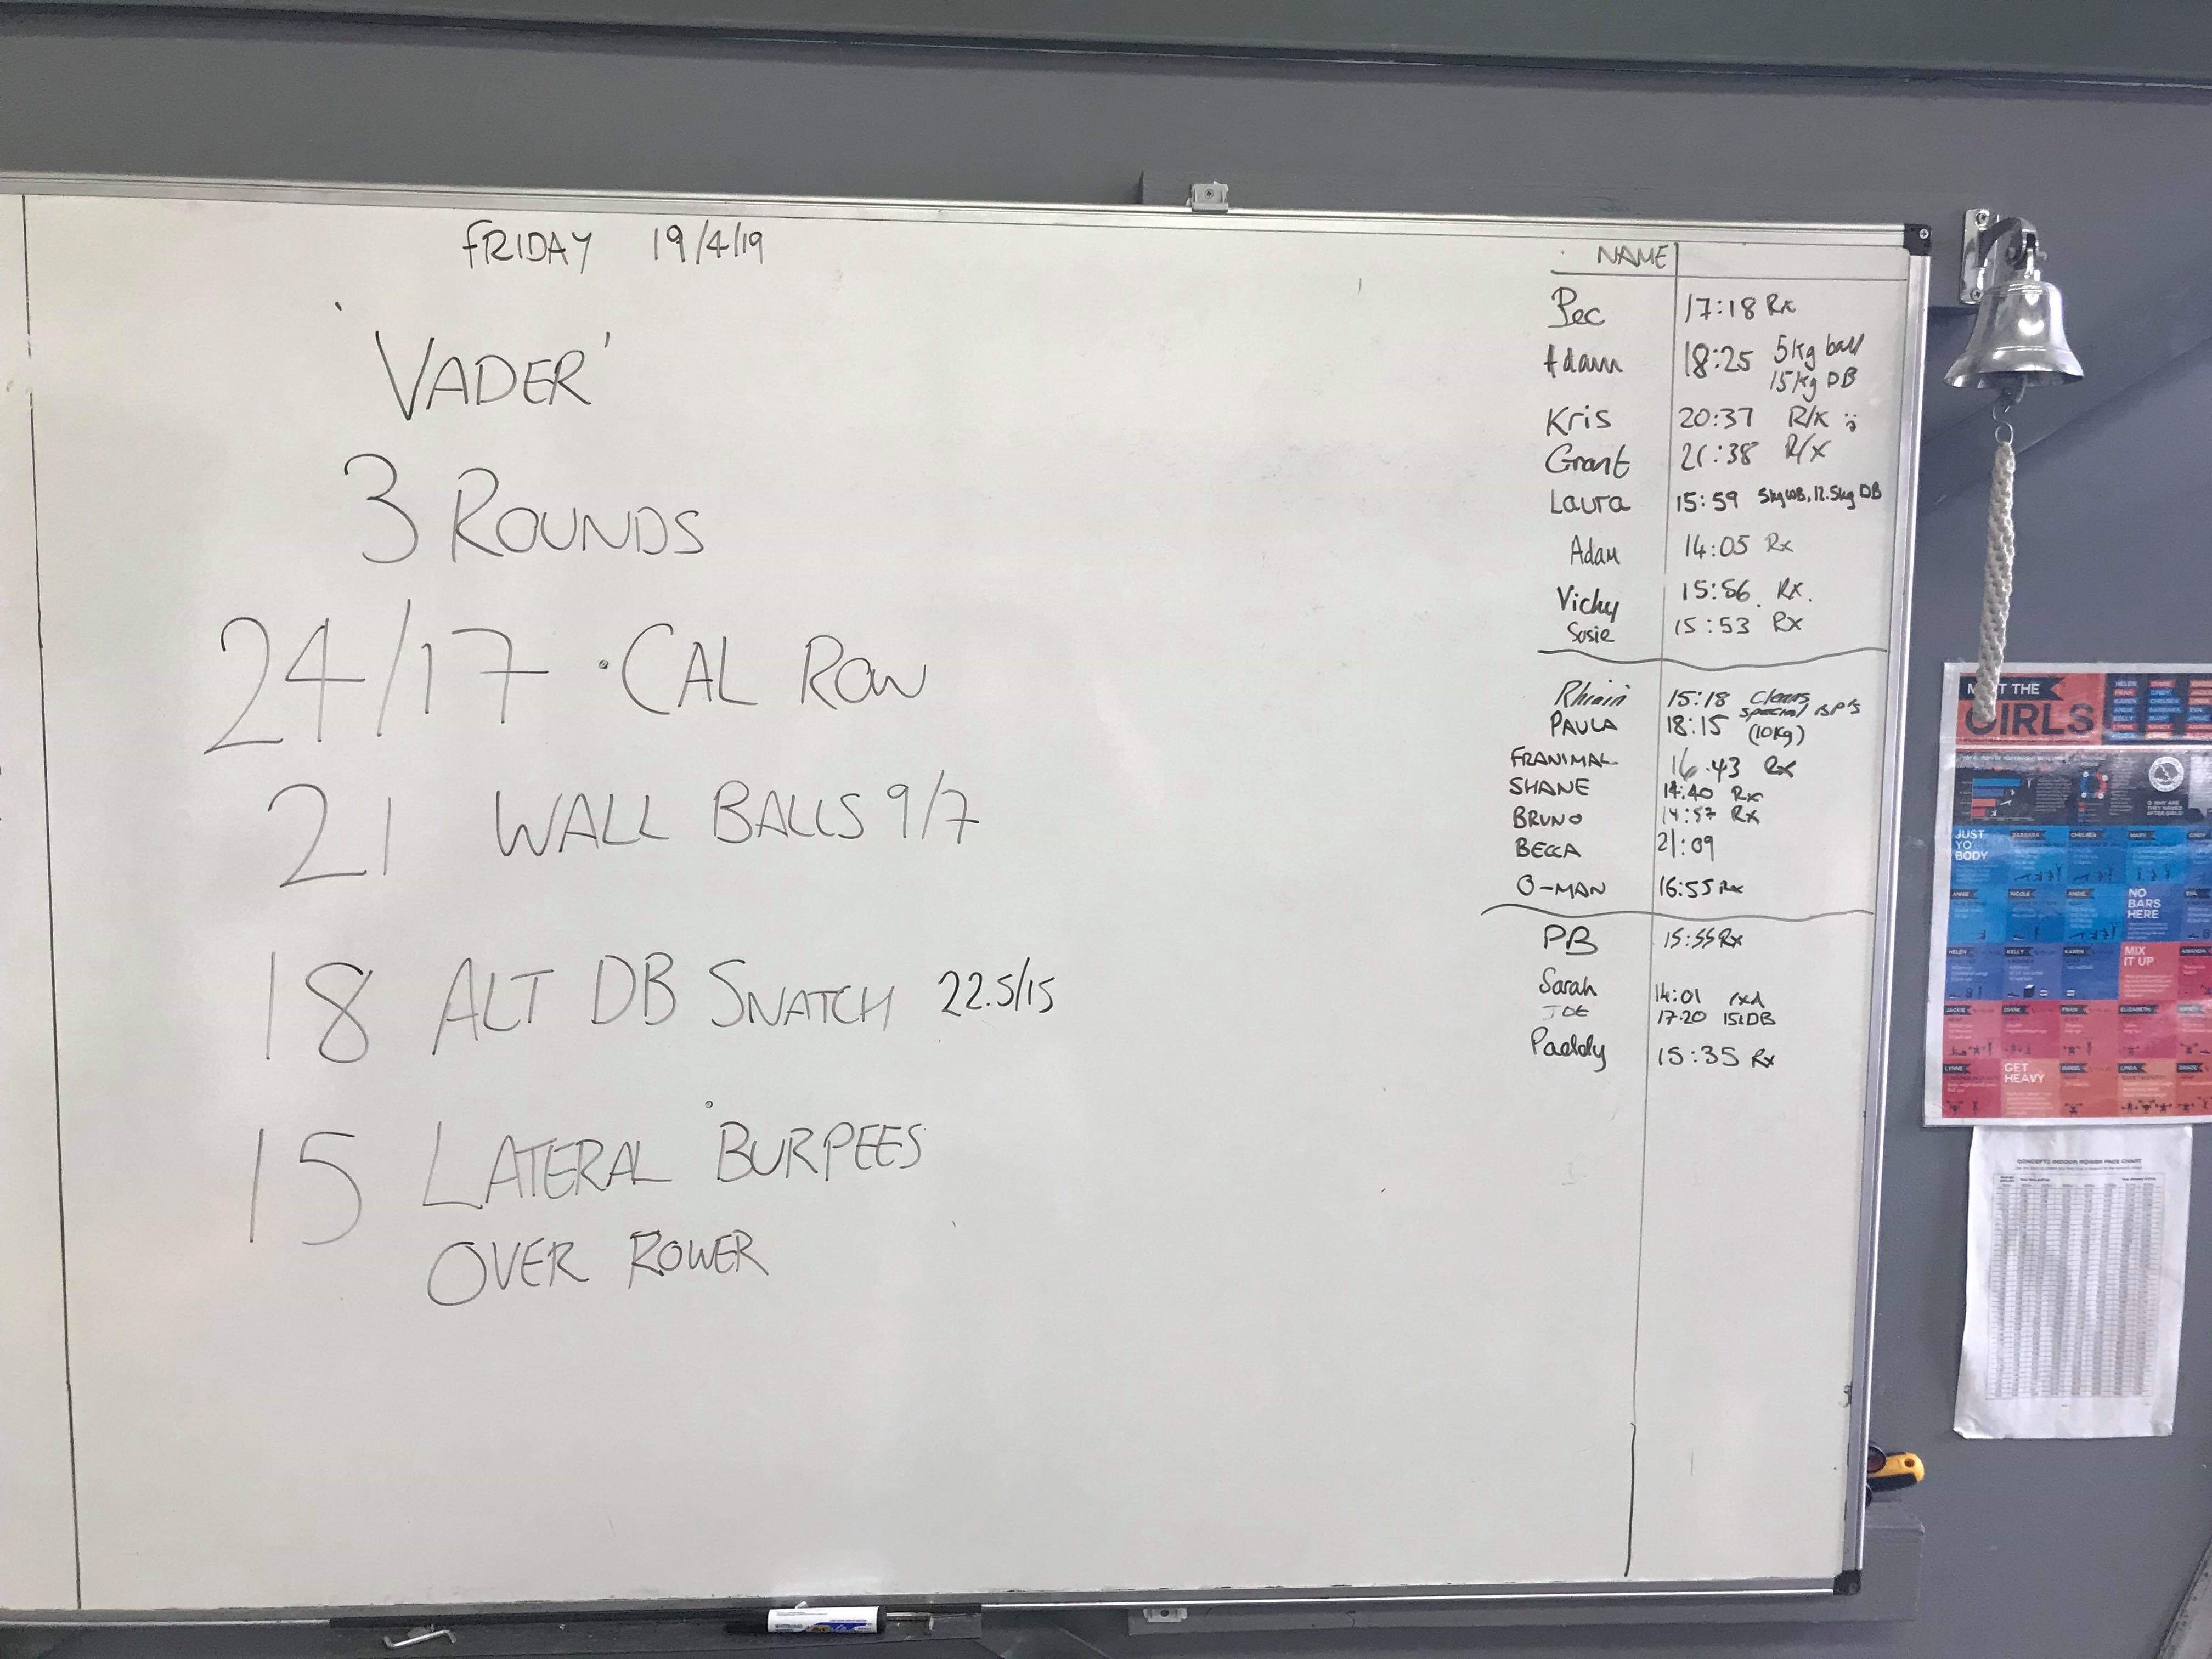 FRIDAY 19/4/19
'VADER'
3 ROUNDS
24/17 CAL ROW
21 WALL BALLS 9/7
18 ALT DB SNATCH 22.5/15
15 LATERAL BURPEES
OVER ROWER
NAME
Bec 17:18 Rx
Adam 18:25 5kg ball
15kg DB
Kris 20:37 R/x
Grant 21:38 R/x
Laura 15:59 5kg WB, 12.5kg DB
Adam 14:05 Rx
Vicky 15:56 Rx.
Susie 15:53 Rx
15:18
special BP's
PAULA 18:15 (10kg)
FRANIMAL 16:43 Rx
SHANE 14:40 Rx
BRUNO 14:57 Rx
BECCA 21:09
O-MAN 16:55 Rx
PB 15:55 Rx
Sarah 14:01 rxd
JOE 17:20 15kDB
Paddy 15:35 Rx
MEET THE
GIRLS
JUST
YO'
BODY
NO
BARS
HERE
MIX
IT UP
GET
HEAVY
CONCEPT2 INDOOR ROWER PACE CHART